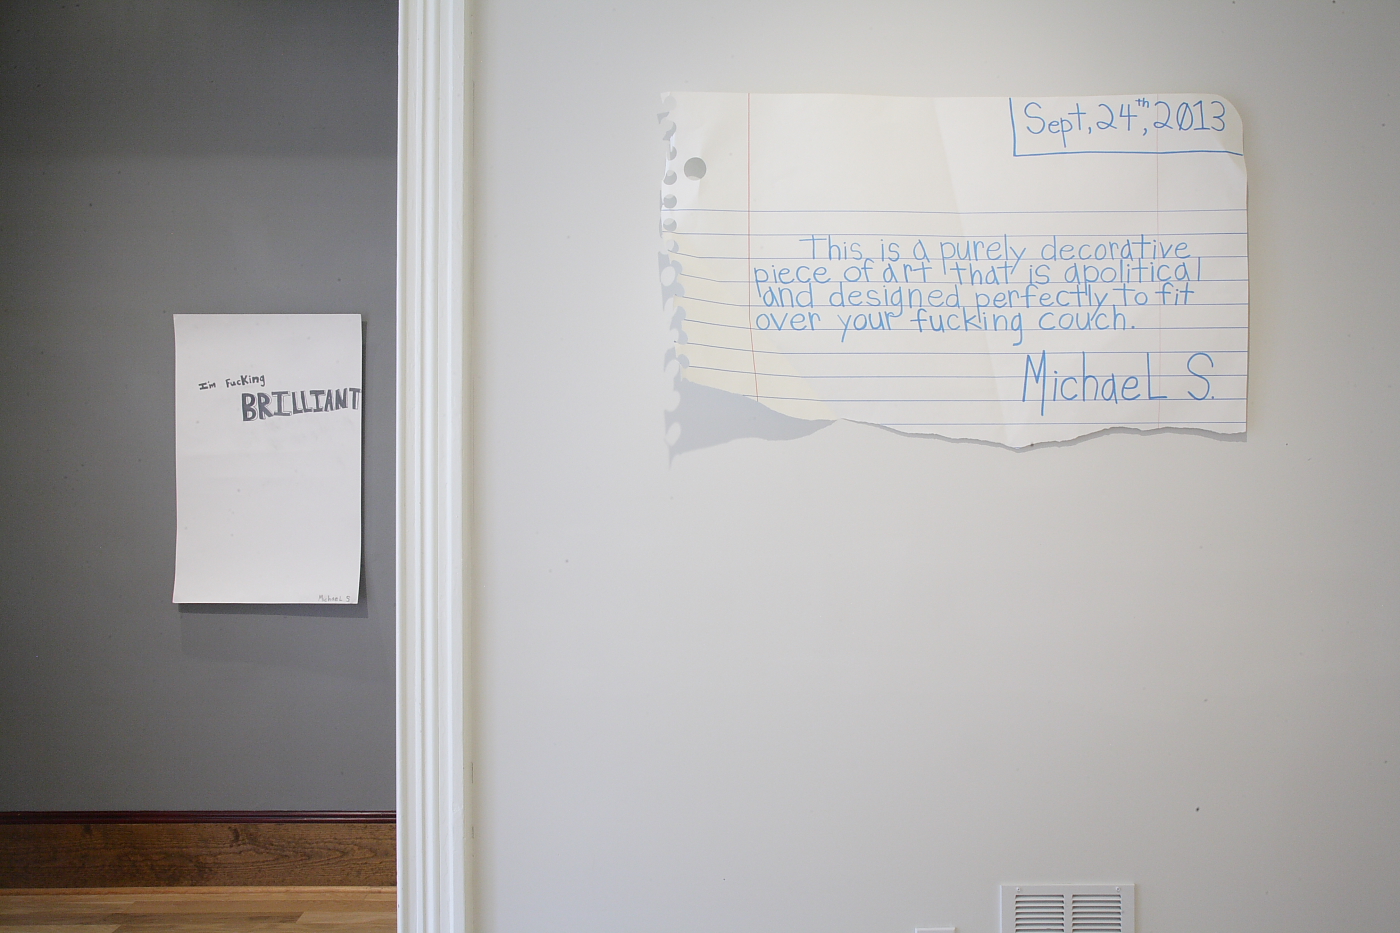 I'm Fucking
BRILLIANT
Michael S.
Sept, 24th, 2013
This is a purely decorative
piece of art that is apolitical
and designed perfectly to fit
over your fucking couch.
MichaeL S.